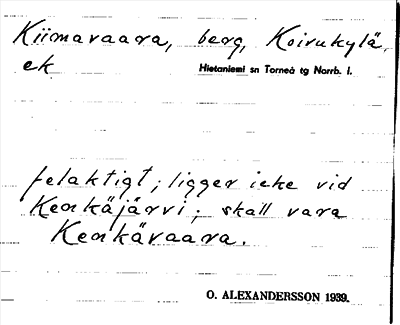 Kiimavaara, berg, Koivukylä,
ek Hietaniemi sn Torneå tg Norrb. l.
felaktigt; ligger icke vid
Kenkäjärvi; skall vara
Kenkävaara.
O. ALEXANDERSSON 1939.